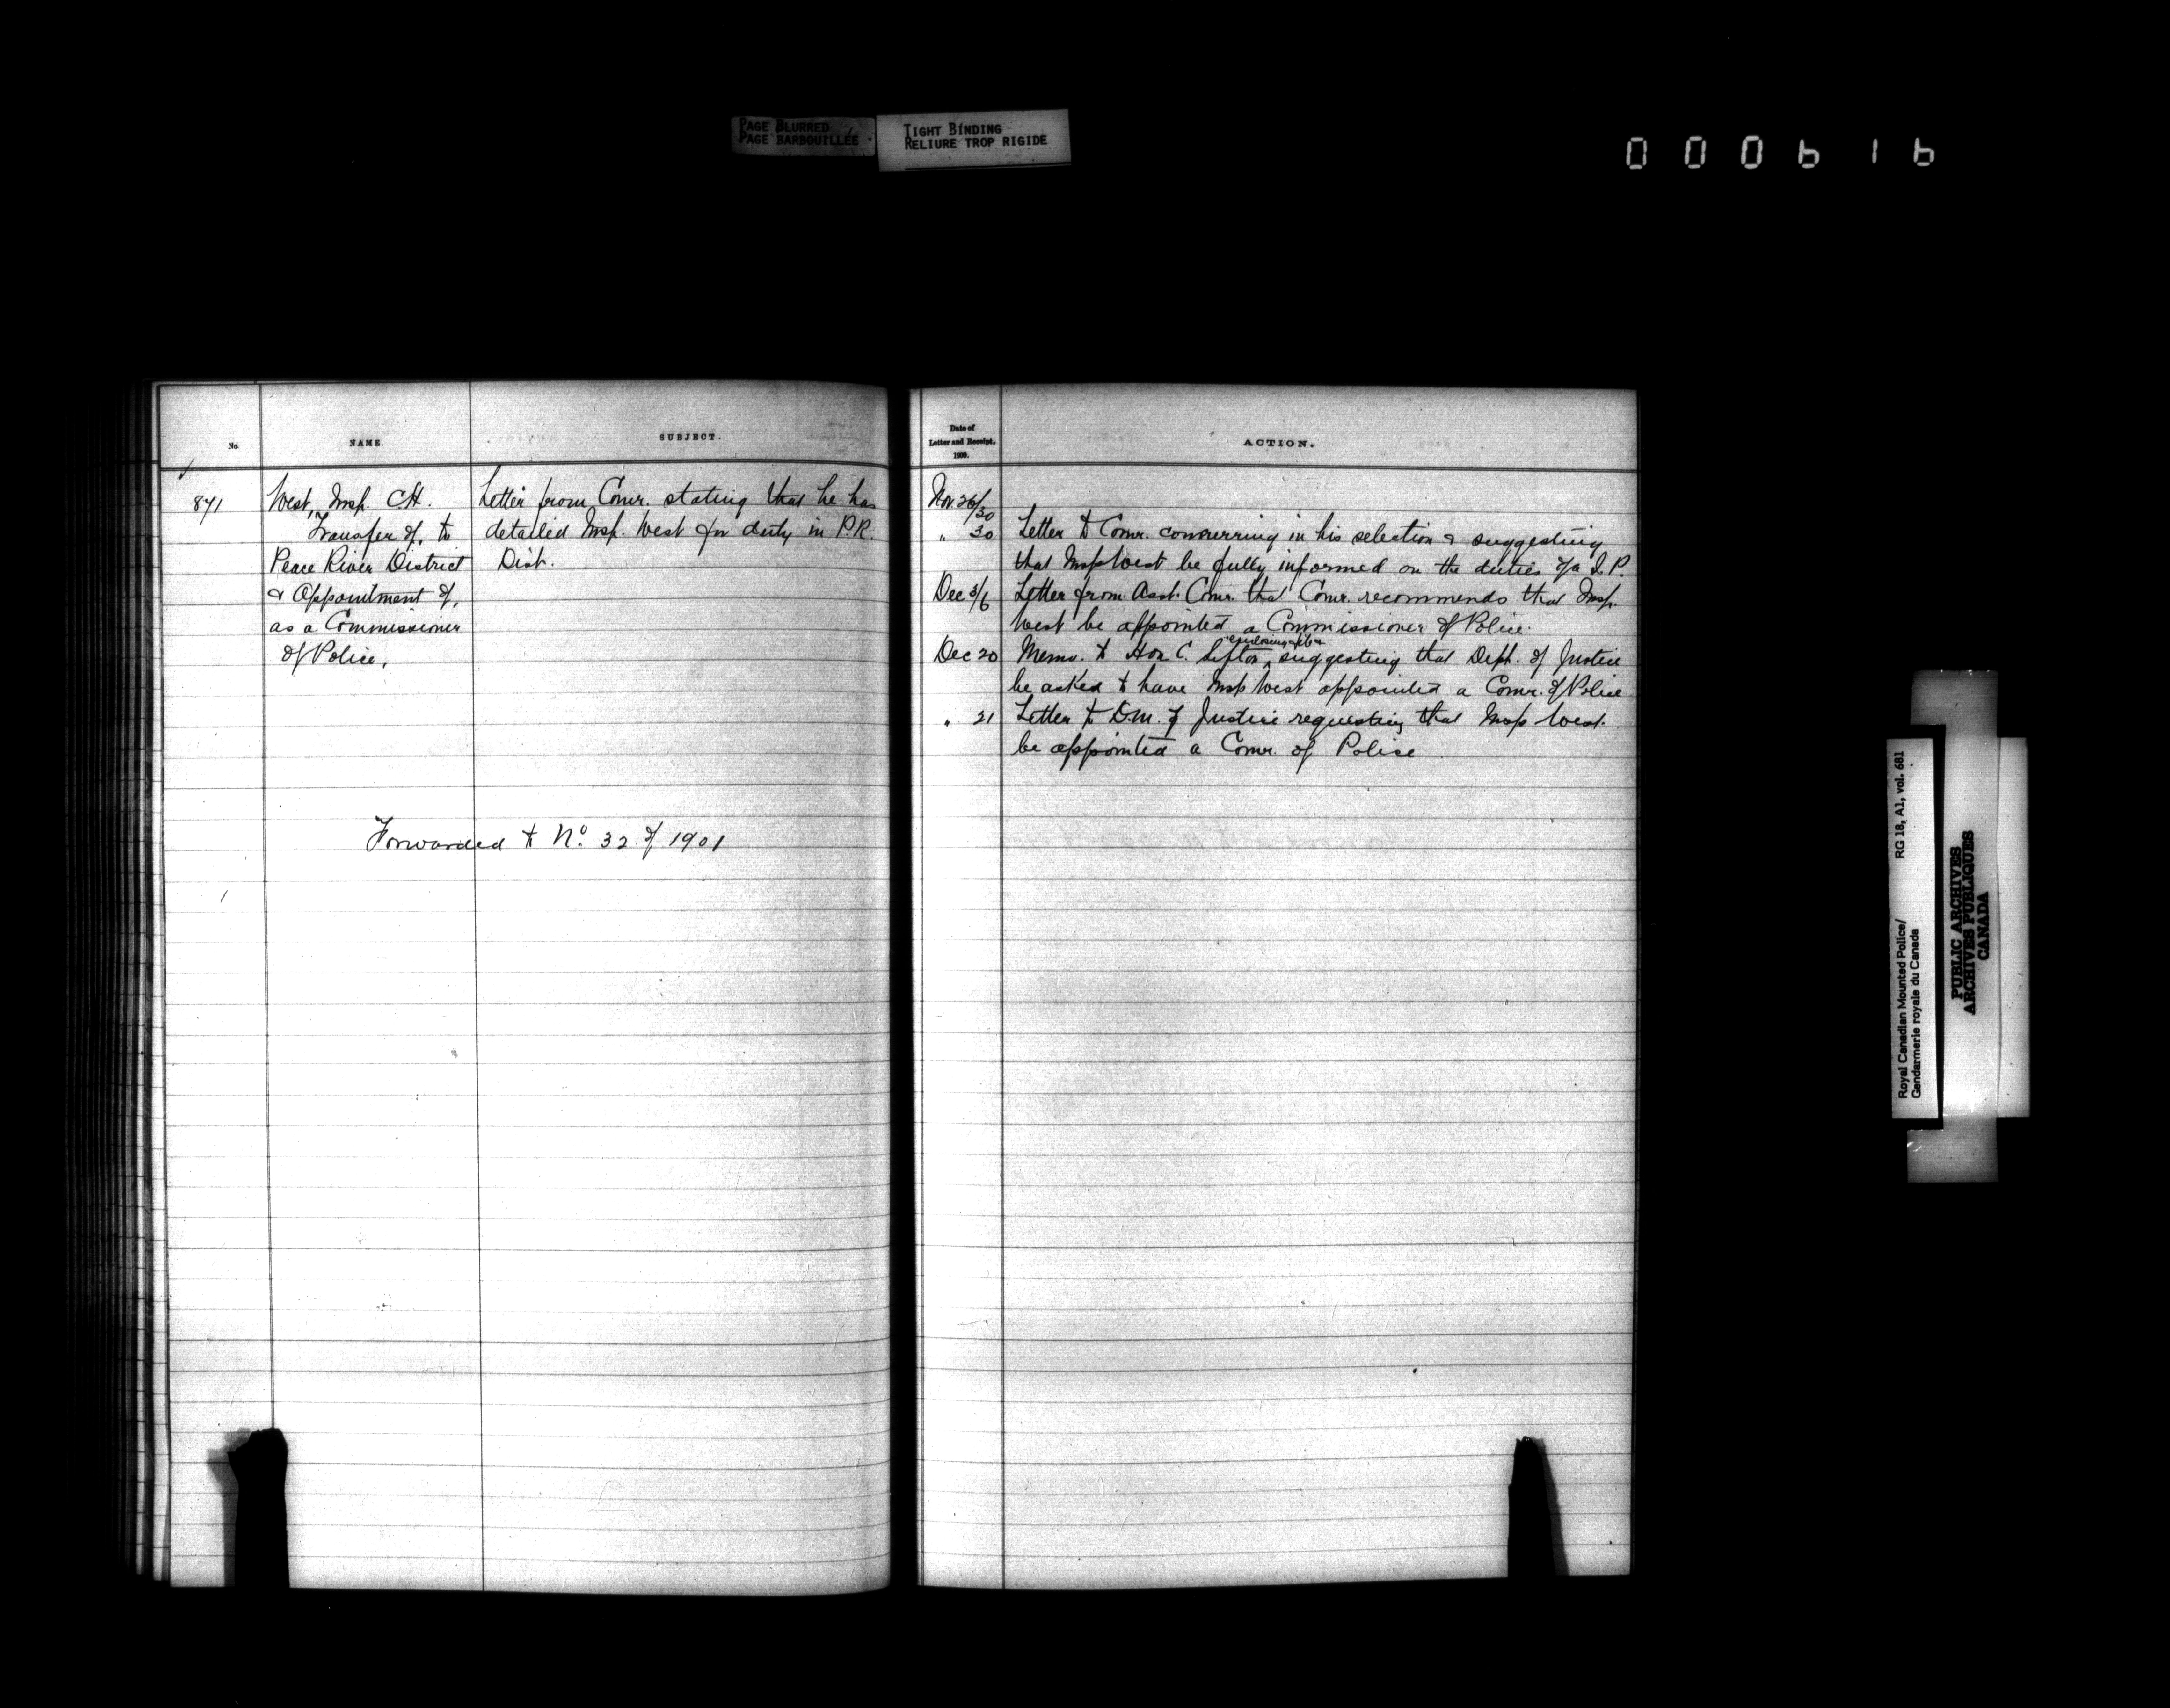 PAGE BLURRED
PAGE BARBOUILLÉE
TIGHT BINDING
RELIURE TROP RIGIDE
000616
No.
NAME
SUBJECT.
871
West, Insp. C.H.
Transfer of, to
Peace River District
& Appointment of,
as a Commissioner
of Police,
Letter from Comr. stating that he has
detailed Insp. West for duty in P.R.
Dist.
Forwarded to No. 32 of 1901
Date of
Letter and Receipt.
1900.
ACTION.
Nov. 26/30
" 30 Letter to Comr. concurring in his selection & suggesting
that Insp West be fully informed on the duties of a J.P.
Dec 3/6 Letter from Asst. Comr. that Comr. recommends that Insp.
West be appointed a Commissioner of Police.
enclosing
Dec 20 Memo. to Hon C. Sifton, suggesting that Dept. of Justice
be asked to have Insp West appointed a Comr. of Police
" 21 Letter to D.M. of Justice requesting that Insp West.
be appointed a Comr. of Police
Royal Canadian Mounted Police/
Gendarmerie royale du Canada
RG 18, A1, vol. 681
PUBLIC ARCHIVES
ARCHIVES PUBLIQUES
CANADA